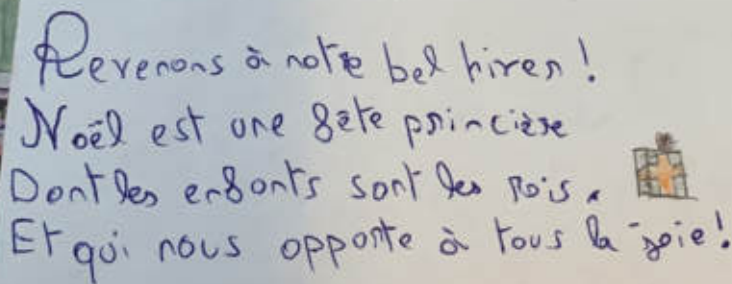 Revenons à notre bel hiver !
Noël est une fête princière
Dont les enfants sont les rois.
Et qui nous apporte à tous la joie !